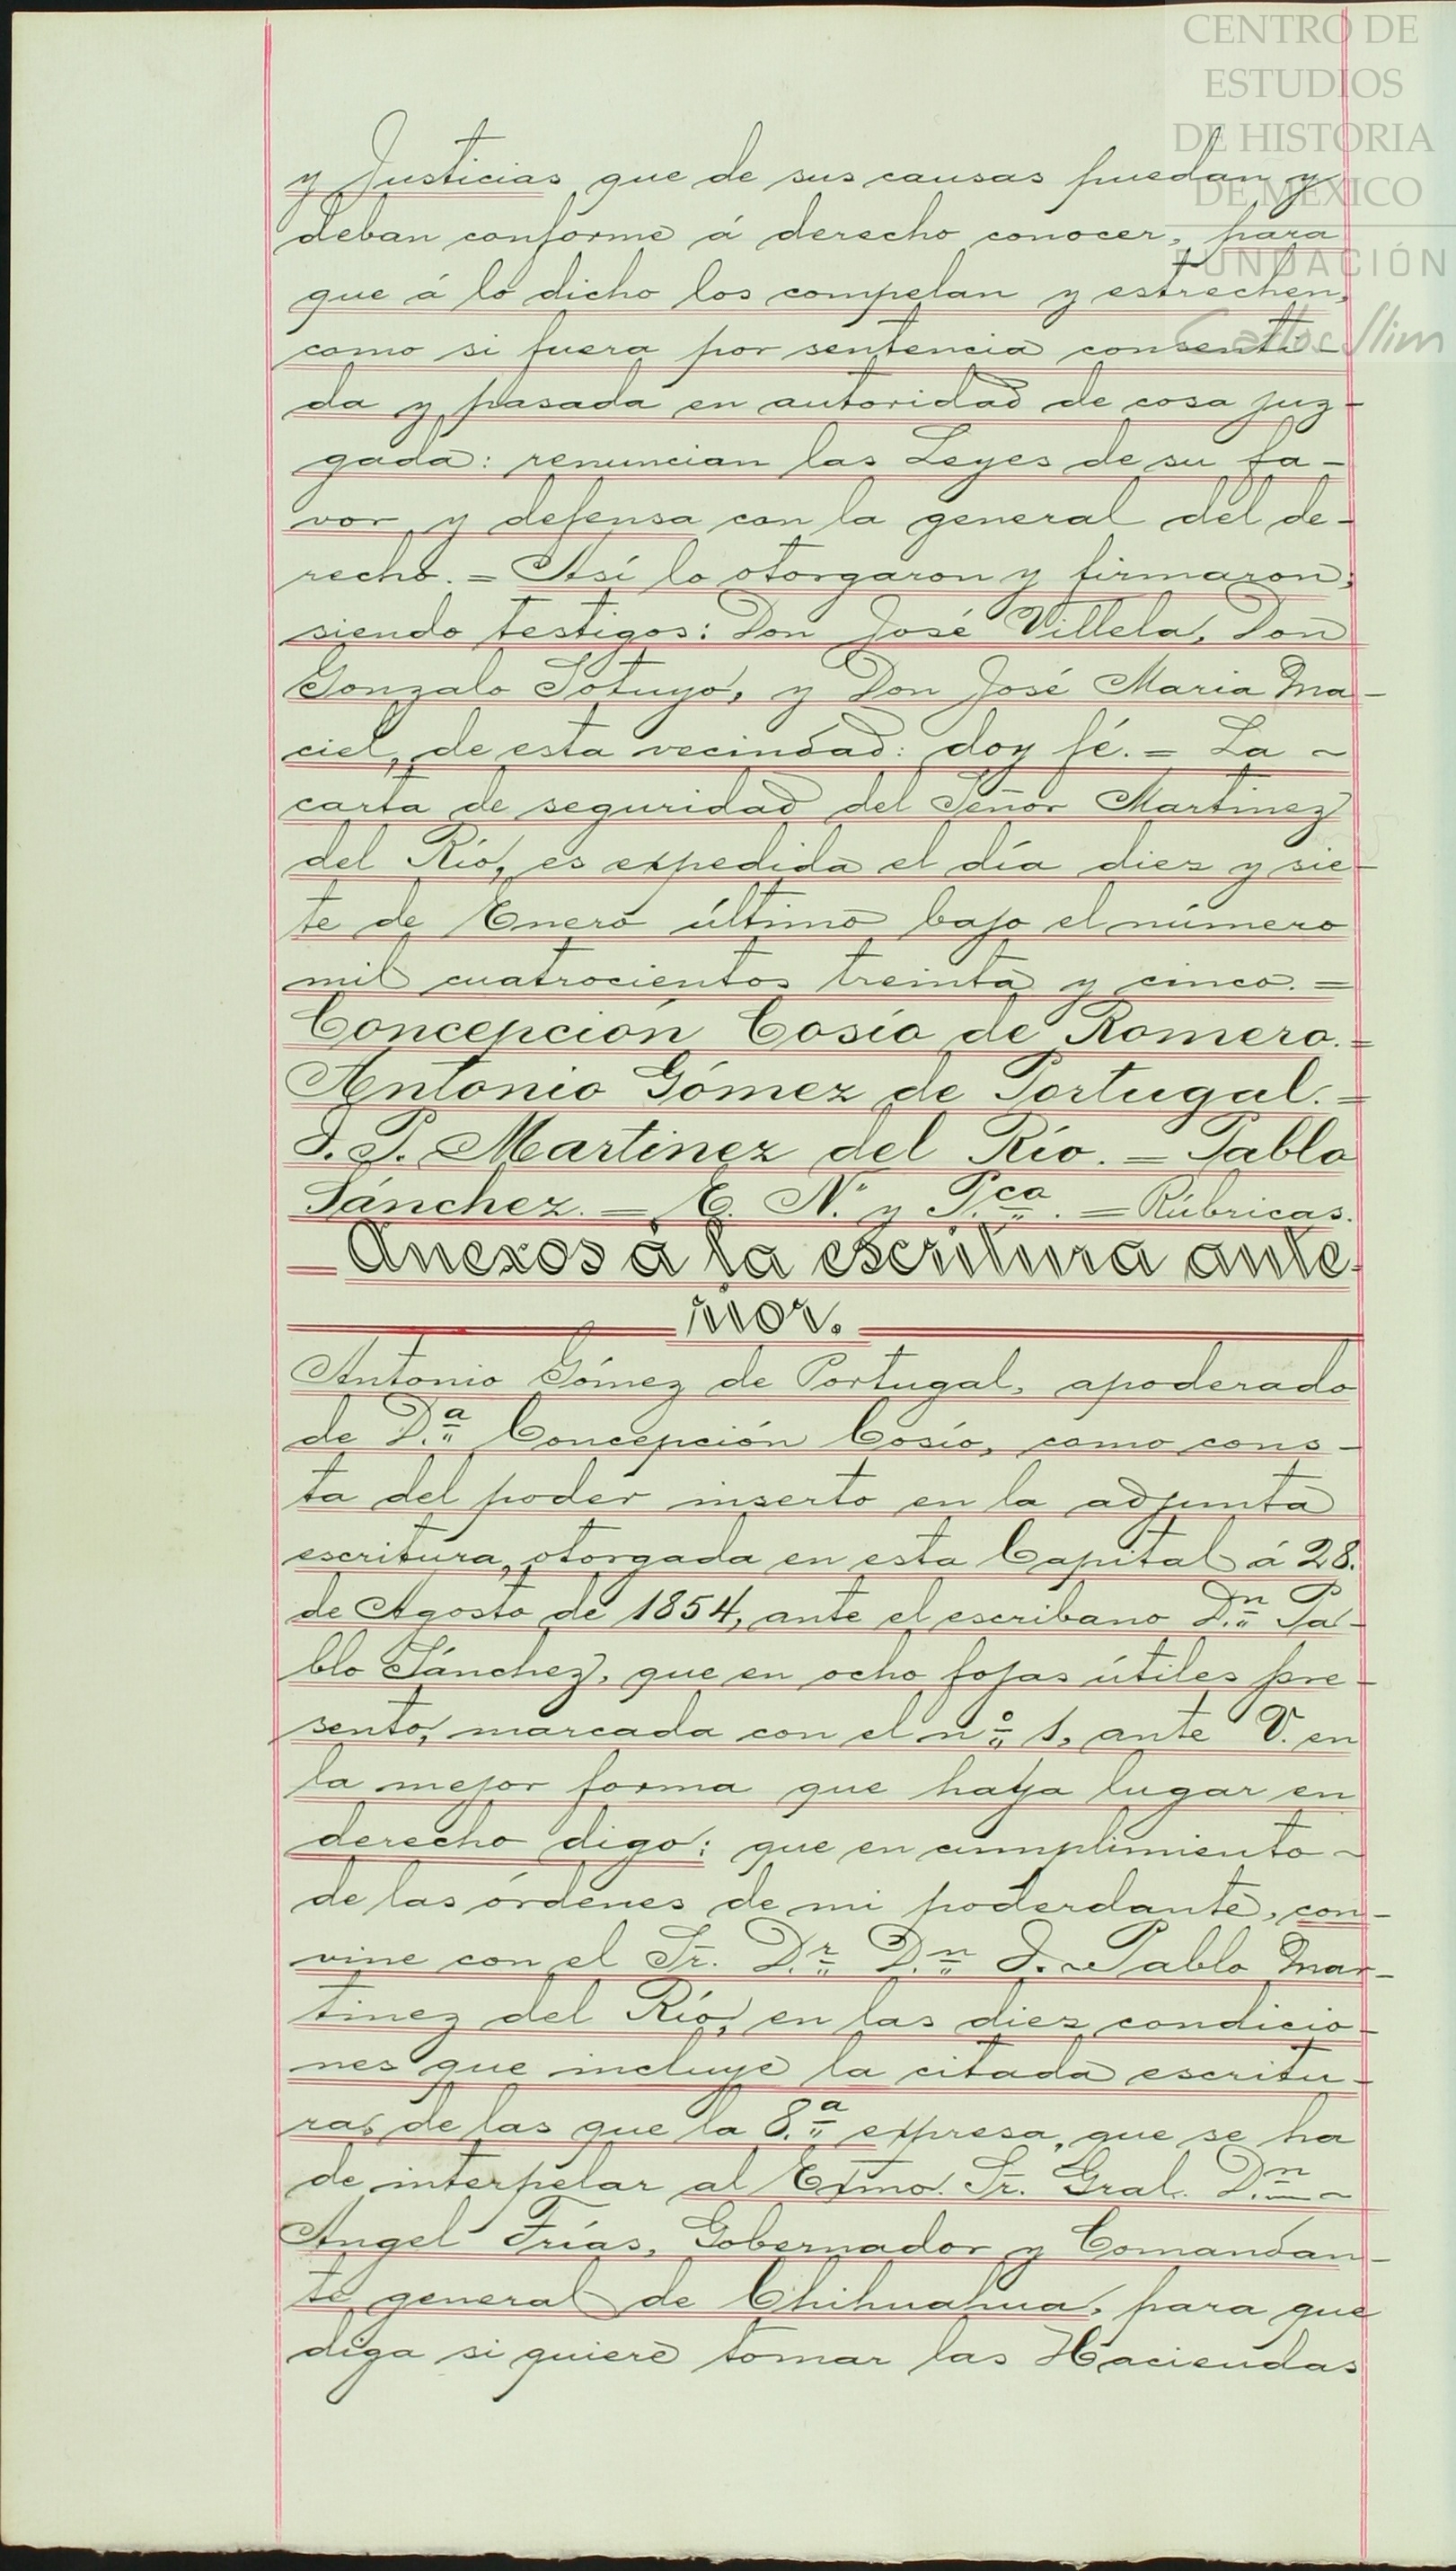 CENTRO DE
ESTUDIOS
DE HISTORIA
DE MÉXICO
FUNDACIÓN
Carlos Slim
y Justicias que de sus causas puedan y
deban conforme á derecho conocer, para
que á lo dicho los compelan y estrechen,
como si fuera por sentencia consenti-
da y pasada en autoridad de cosa juz-
gada: renuncian las Leyes de su fa-
vor y defensa con la general del de-
recho. = Así lo otorgaron y firmaron,
siendo testigos: Don José Villela, Don
Gonzalo Sotuyo, y Don José Maria Ma-
ciel, de esta vecindad: doy fé. = La ~
carta de seguridad del Señor Martinez
del Río, es expedida el día diez y sie-
te de Enero último bajo el número
mil cuatrocientos treinta y cinco. =
Concepción Cosío de Romero. =
Antonio Gómez de Portugal. =
J. P. Martinez del Río. = Pablo
Sánchez. = E. N. y P.co. = Rúbricas.
Anexos á la escritura ante-
rior.
Antonio Gómez de Portugal, apoderado
de D.a Concepción Cosío, como cons-
ta del poder inserto en la adjunta
escritura, otorgada en esta Capital á 28.
de Agosto de 1854, ante el escribano D.n Pa-
blo Sánchez, que en ocho fojas útiles pre-
sento, marcada con el nº 1, ante V. en
la mejor forma que haya lugar en
derecho digo: que en cumplimiento ~
de las órdenes de mi poderdante, con-
vine con el Sr. D.r D.n J. Pablo Mar-
tinez del Río, en las diez condicio-
nes que incluye la citada escritu-
ra, de las que la 8.a expresa, que se ha
de interpelar al Exmo. Sr. Gral. D.n ~
Angel Frías, Gobernador y Comandan-
te general de Chihuahua, para que
diga si quiere tomar las Haciendas